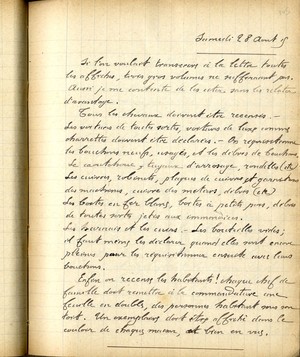 Samedi 28 Août
Si l'on voulait transcrire à la lettre toutes
les affiches, trois gros volumes ne suffiraient pas.
Aussi je me contente de les citer sans les relater
d'avantage.
Tous les chevaux doivent être recensés. -
Les voitures de toutes sortes, voitures de luxe comme
charrettes doivent être déclarées. - On réquisitionne
les bouchons neufs, usagés, et les débris de bouchons,
le caoutchouc, tuyaux d'arrosage, rondelles (etc)
Les cuivres, robinets, plaques de cuivres et garnitures
des machines, cuivre des moteurs, débris (etc)
Les boîtes en fer blanc, boîtes à petits pois, débris
de toutes sortes jetés aux immondices.
Les harnais et les cuirs. - Les bouteilles vides;
et faut même les déclarer quand elles sont encore
pleines pour les réquisitionner ensuite avec leurs
bouchons.
Enfin on recense les habitants! chaque chef de
famille doit remettre à la commandature une
feuille en double, des personnes habitant sous son
toit. Un exemplaire doit être affiché dans le
couloir de chaque maison, et bien en vue.